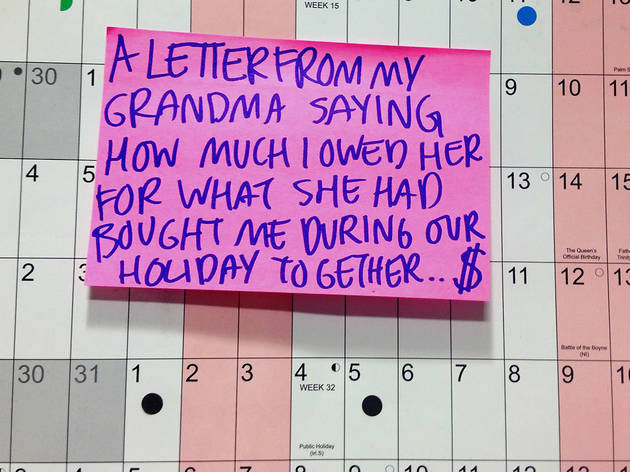 WEEK 15
A LETTER FROM MY
GRANDMA SAYING
HOW MUCH I OWED HER
FOR WHAT SHE HAD
BOUGHT ME DURING OUR
HOLIDAY TOGETHER.. $
30 1 9 10 11
4 5 13 14 15
The Queen's
Official Birthday
2 3 11 12
Battle of the Boyne
(NI)
30 31 1 2 3 4 5 6 7 8 9
WEEK 32
Public Holiday
(Irl.S)